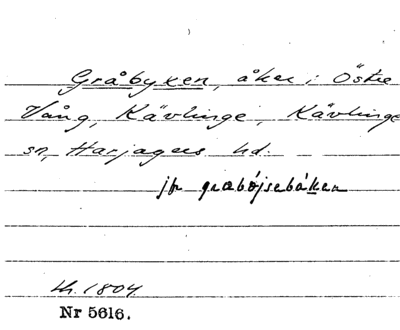 Gråbyxen, åker i Östre
Vång, Kävlinge, Kävlinge
sn, Harjagers hd.
jfr græbøjsebáken
lh. 1804
Nr 5616.